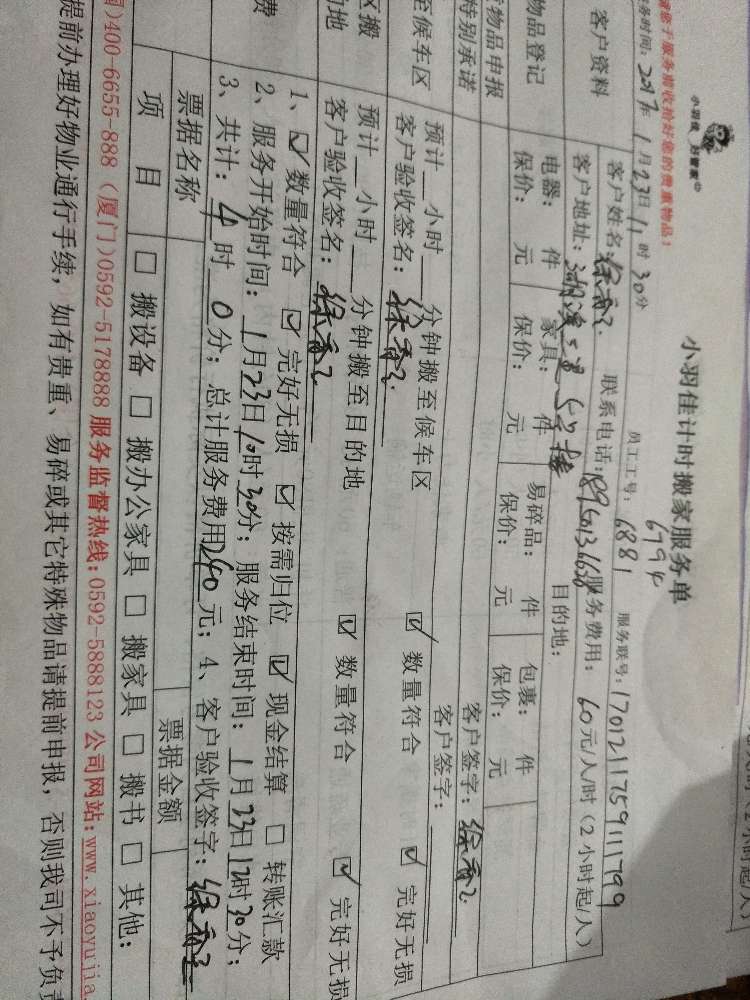 小羽佳 好管家
小羽佳计时搬家服务单
6794
您于服务前收拾好您的贵重物品!
务时间: 2017年 1月23日11时30分
员工工号: 6881
服务联号: 17012117591111799
客户资料
客户姓名:
联系电话:
服务费用: 60元/人/时(2小时起/人)
客户地址:
目的地:
物品登记
电器: 件 家具: 件 易碎品: 件 包裹: 件
保价: 元 保价: 元 保价: 元 保价: 元
货物品申报
客户签字:
特别承诺
客户签字:
至候车区
预计 小时 分钟搬至候车区 ☑ 数量符合 ☑ 完好无损
客户验收签名:
区搬
的地
预计 小时 分钟搬至目的地 ☑ 数量符合 ☑ 完好无损
客户验收签名:
费
1、☑ 数量符合 ☑ 完好无损 ☑ 按需归位 ☑ 现金结算 □ 转账汇款
2、服务开始时间: 1月23日10时30分; 服务结束时间: 1月23日12时30分;
3、共计: 4时 0分; 总计服务费用240元; 4、客户验收签字:
票据名称 票据金额
项目 □ 搬设备 □ 搬办公家具 □ 搬家具 □ 搬书 □ 其他:
)400-6655-888 (厦门)0592-5178888 服务监督热线:0592-5888123 公司网站:www.xiaoyujia.
提前办理好物业通行手续, 如有贵重、易碎或其它特殊物品请提前申报, 否则我司不予负责